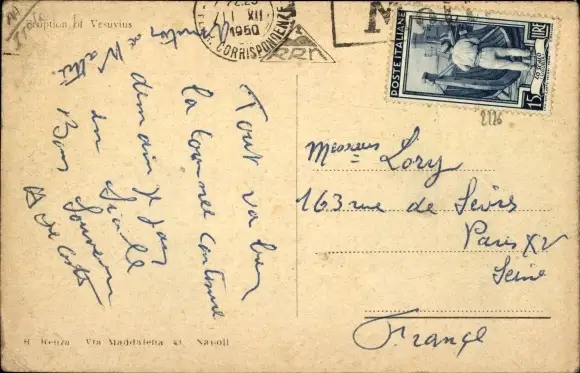 Eruption of Vesuvius
1 XII
1950
CORRISPONDENZE
POSTE ITALIANE
LIRE
15
2126
Tout va bien
la tournée continue
demain je pars
en Sicile
Bons Souvenirs
Messieurs Lory
163 rue de Sèvres
Paris XV
Seine
France
R. Renza Via Maddalena Napoli